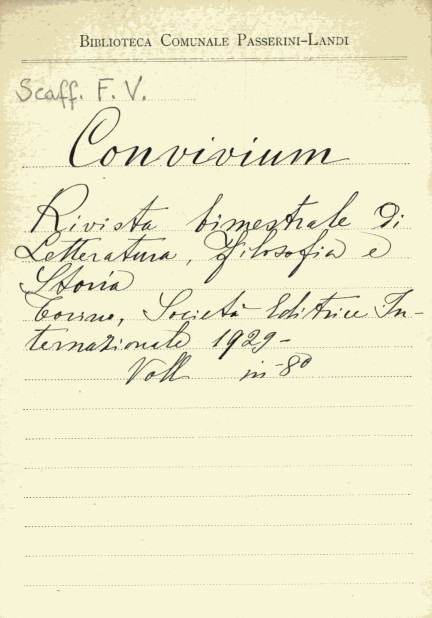 BIBLIOTECA COMUNALE PASSERINI-LANDI
Scaff. F. V.
Convivium
Rivista bimestrale di
Letteratura, Filosofia e
Storia
Torino, Società Editrice In-
ternazionale 1929-
Voll. in-8°